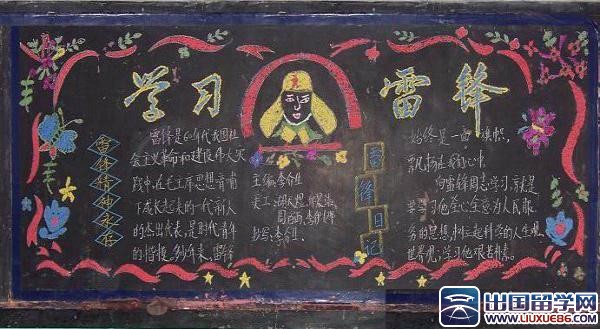 学习
雷锋
雷锋精神永存
雷锋是60年代我国社
会主义革命和建设伟大实
践中,在毛主席思想哺育
下成长起来的一代新人
的杰出代表,是时代青年
的楷模,多少年来,雷锋
主编:李
美工:
书写:李
雷锋日记
始终是一面旗帜,
飘扬在我们心中。
向雷锋同志学习,就是
要学习他全心全意为人民服
务的思想,树立起科学的人生观,
世界观;学习他艰苦朴素。
出国留学网
WWW.LIUXUE86.COM